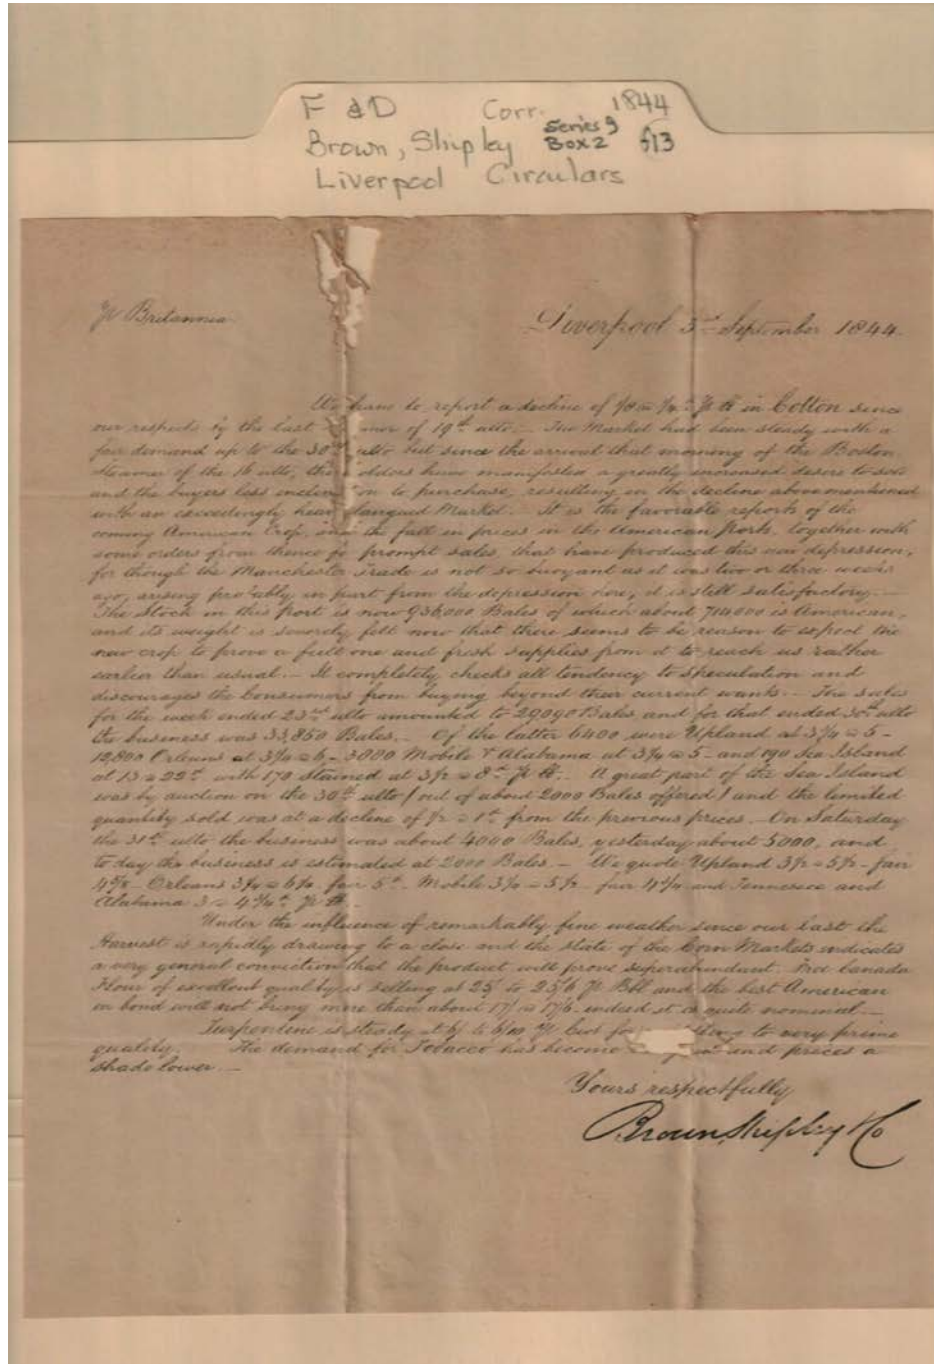 F & D Corr. 1844
Brown, Shipley Series 9 Box 2 f13
Liverpool Circulars
Pr Britannia
Liverpool 3rd September 1844.
We have to report a decline of 1/8 @ 1/4d Pr lb in Cotton since
our respects by the last of 19th ulto. The Market had been steady with a
fair demand up to the 30th ulto but since the arrival that morning of the Boston
Steamer of the 16 ulto, the olders have manifested a greatly increased desire to sell
and the buyers less inclin on to purchase, resulting in the decline above mentioned
with an exceedingly heav languid Market. It is the favorable reports of the
coming American Crop, and the fall in prices in the American Ports, together with
some orders from thence fo prompt sales, that have produced this depression,
for though the Manchester Trade is not so buoyant as it was two or three weeks
ago, arising probably in part from the depression here, it is still satisfactory.—
The Stock in this port is now 936,000 Bales of which about 714,000 is American,
and its weight is severely felt now that there seems to be reason to expect the
new crop to prove a full one and fresh supplies from it to reach us rather
earlier than usual.— It completely checks all tendency to Speculation and
discourages the Consumers from buying beyond their current wants.— The Sales
for the week ended 23rd ulto amounted to 29,090 Bales, and for that ended 30th ulto
the business was 33,850 Bales.— Of the latter 6400 were Upland at 3 3/4 @ 5 -
12,800 Orleans at 3 3/4 @ 6 - 3000 Mobile & Alabama at 3 3/4 @ 5 - and 190 Sea Island
at 13 @ 22d with 170 Stained at 3 1/2 @ 8d Pr lb.— A great part of the Sea Island
was by auction on the 30th ulto (out of about 2000 Bales offered) and the limited
quantity sold was at a decline of 1/2 @ 1d from the previous prices.— On Saturday
the 31st ulto the business was about 4000 Bales, yesterday about 5000, and
to day the business is estimated at 2000 Bales.— We quote Upland 3 1/2 @ 5 1/2 - fair
4 5/8 - Orleans 3 3/4 @ 6 1/2, fair 5d - Mobile 3 1/2 @ 5 1/2 - fair 4 3/4 and Tennessee and
Alabama 3 @ 4 3/4d Pr lb.
Under the influence of remarkably fine weather since our last the
Harvest is rapidly drawing to a close and the state of the Corn Markets indicates
a very general conviction that the product will prove superabundant. Free Canada
Flour of excellent quality is selling at 25/ to 25/6 Pr Bbl and the best American
in bond will not bring more than about 17/ @ 17/6 - indeed it is quite nominal.—
Turpentine is steady at 6/ to 6/10 Pr Cwt for to very prime
quality. The demand for Tobacco has become and prices a
shade lower.—
Yours respectfully
Brown Shipley & Co